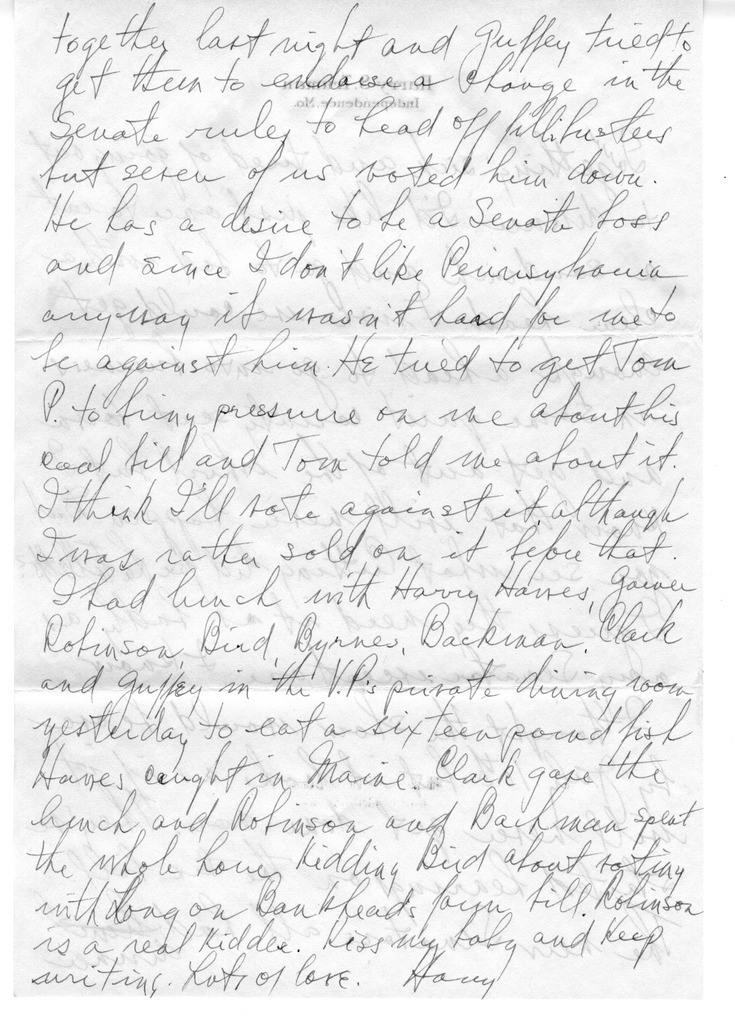 together last night and Guffey tried to
get them to endorse a change in the
Senate rules to head off fillibusters
but seven of us voted him down.
He has a desire to be a Senate boss
and since I don't like Pennsylvania
anyway it wasn't hard for me to
be against him. He tried to get Tom
P. to bring pressure on me about his
coal bill and Tom told me about it.
I think I'll vote against it although
I was rather sold on it before that.
I had lunch with Harry Hawes, Garner
Robinson, Bird, Byrnes, Backman, Clark
and Guffey in the V.P.'s private dining room
yesterday to eat a sixteen pound fish
Hawes caught in Maine. Clark gave the
lunch and Robinson and Bachman spent
the whole hour kidding Bird about voting
with Long on Bankhead's farm bill. Robinson
is a real kidder. Kiss my baby and keep
writing. Lots of love. Harry
Independence, Mo.